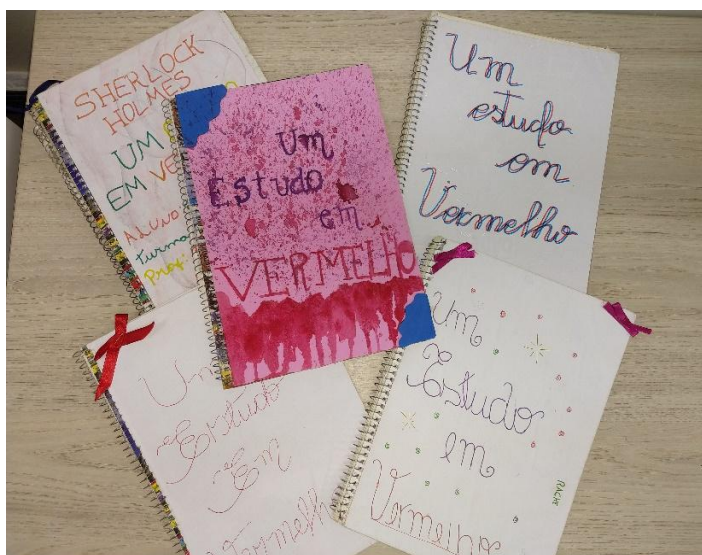 SHERLOCK
HOLMES
UM
EM VE
ALUNO
Turma
Prof:
Um
Estudo
em
VERMELHO
Um
estudo
em
Vermelho
Um
Estudo
Em
Vermelh
Um
Estudo
em
Vermelho
RACHE